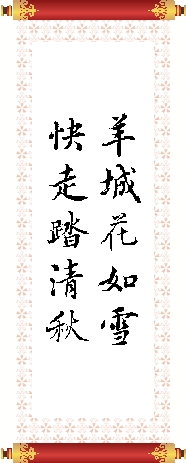 羊城花如雪
快走踏清秋